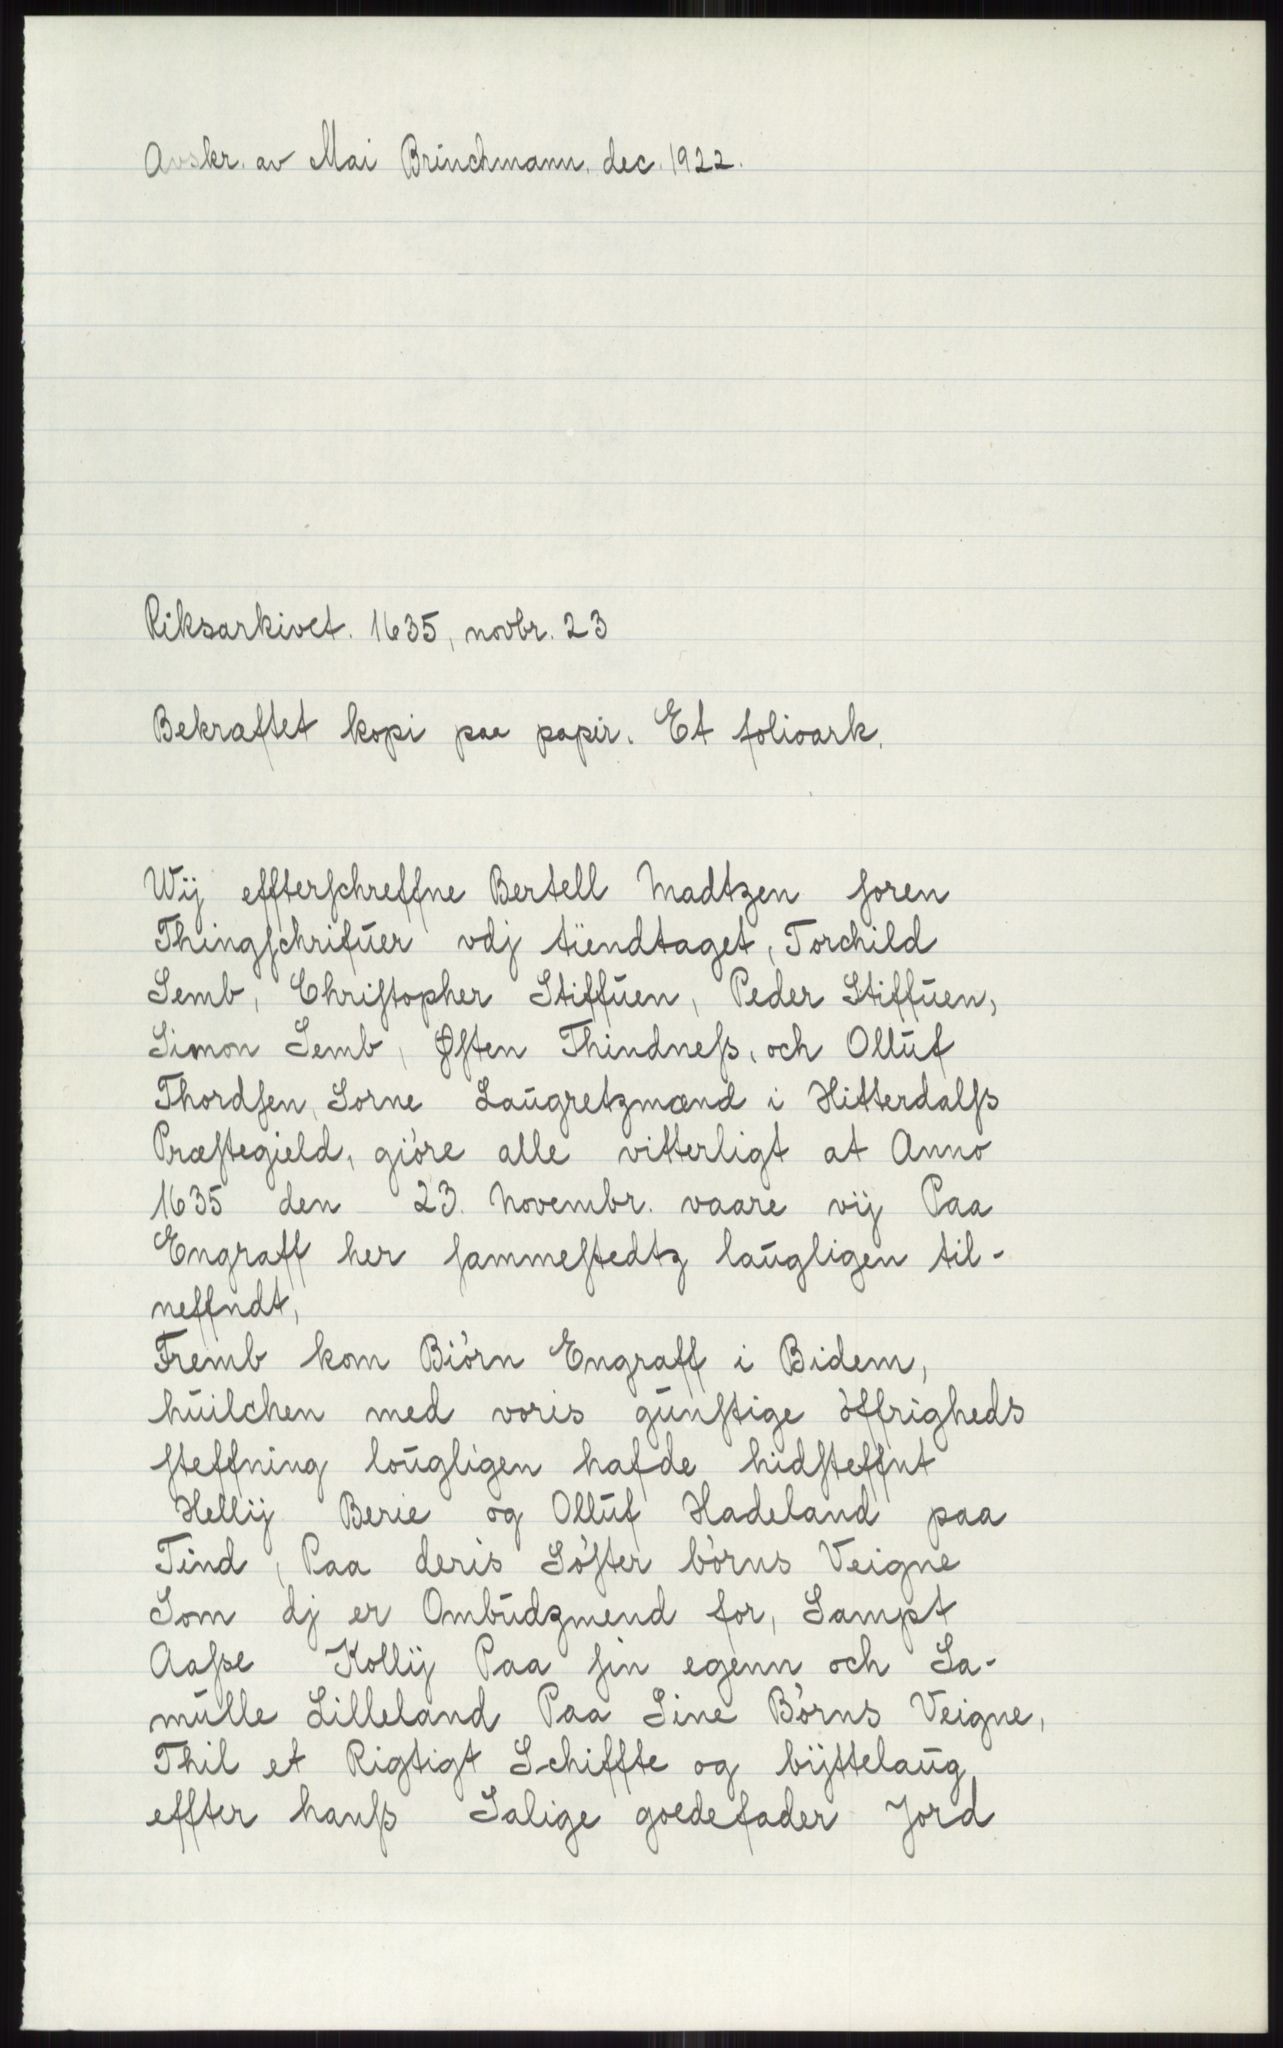 Avskr. av Mai Brinchmann, dec. 1922.
Riksarkivet. 1635, novbr. 23
Bekræftet kopi paa papir. Et folioark.
Wij effterſchreffne Bertell Madtzen ſoren
Thingſchrifuer vdj tiendtaget, Torchild
Semb, Chriſtopher Stiffuen, Peder Stiffuen,
Simon Semb, Øſten Thindneſs, och Olluf
Thordſen, Sorne Laugretzmænd i Hitterdalſs
Præſtegield, giöre alle vitterligt at Anno
1635 den 23. Novembr. vaare vij Paa
Engraff her ſammeſtedtz laugligen til-
neffndt,
Fremb kom Biörn Engraff i Bidem,
huilchen med voris gunſtige öffrigheds
ſteffning lougligen hafde hidſteffnt
Hellij Berie og Olluf Hadeland paa
Tind, Paa deris Söſter börns Veigne
Som dj er Ombudzmend for, Sampt
Aaſse Kollij Paa ſin egenn och Sa-
mulle Lilleland Paa Sine Börns Veigne,
Thil et Rigtigt Schiffte og bÿttelaug,
effter hanſs Salige goedefader Jord